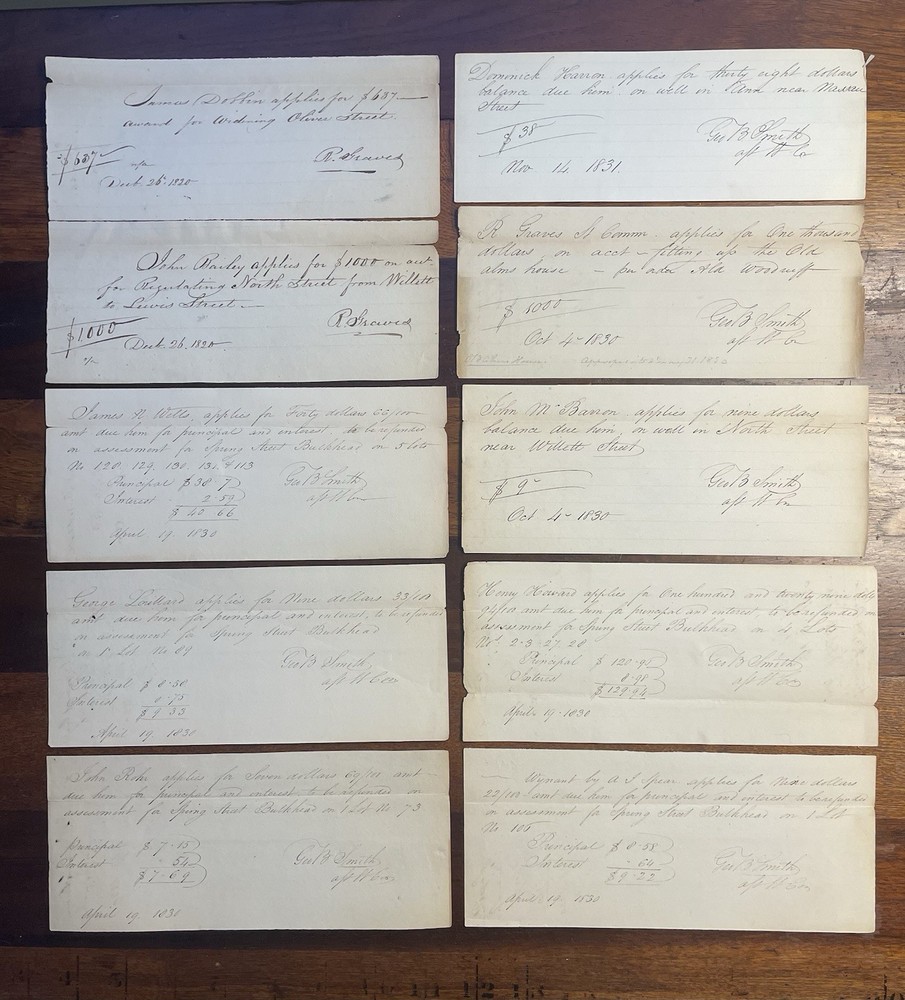 James Dobbin applies for $687
award for Widening Oliver Street.
$687
R. Graves
Dect. 26. 1820
John Bailey applies for $1000 on act
for Regulating North Street from Willett
to Lewis Street.
$1000
R. Graves
Dect 26. 1820.
James N Wells, applies for Forty dollars 66/100
amt due him for principal and interest, to be refunded
on assessment for Spring Street Bulkhead on 5 lots
No 120. 129. 130. 131. & 113
Principal $38 7
Interest 2.59
$40 66
Geo B Smith
April 19. 1830
George Lorillard applies for Nine dollars 33/100
amt due him for principal and interest, to be refunded
on assessment for Spring Street Bulkhead
on 1 Lot No 84
Geo B Smith
Principal $8.58
Interest 0.75
$9.33
April 19. 1830
John Rohr applies for Seven dollars 69/100 amt
due him for principal and interest, to be refunded on
assessment for Spring Street Bulkhead on 1 Lot No 73
Principal $7.15
Interest .54
$7.69
Geo B Smith
April 19. 1830
Domonick Harron applies for thirty eight dollars
balance due him on well in Ann near Nassau
Street
$38
Geo B Smith
Nov 14. 1831.
R Graves St Comm. applies for One thousand
dollars on acct - fitting up the Old
alms house - per ado Ald Woodruff
$1000
Geo B Smith
Oct 4 - 1830
John Mc Barron applies for nine dollars
balance due him, on well in North Street
near Willett Street
$9
Geo B Smith
Oct 4 - 1830
Henry Howard applies for One hundred and twenty nine dolls
94/100 amt due him for principal and interest, to be refunded on
assessment for Spring Street Bulkhead on 4 Lots
Nos 2-3-27.28
Principal $120.96
Interest 8.98
$129.94
Geo B Smith
April 19-1830
Wynant by A S Spear applies for Nine dollars
22/100 amt due him for principal and interest to be refunded
on assessment for Spring Street Bulkhead on 1 Lot
No 105
Principal $8.58
Interest .64
$9.22
Geo B Smith
April 19. 1830